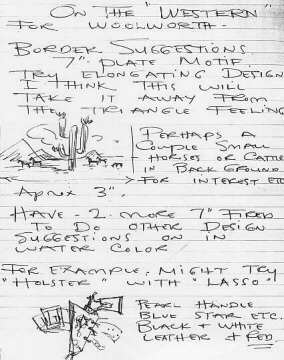 ON THE "WESTERN"
FOR WOOLWORTH -
BORDER SUGGESTIONS.
7" PLATE MOTIF
TRY ELONGATING DESIGN
I THINK THIS WILL
TAKE IT AWAY FROM
THE TRIANGLE FEELING
PERHAPS A
COUPLE SMALL
HORSES OR CATTLE
IN BACK GROUND
FOR INTEREST ETC
Aprox 3".
HAVE - 2 - MORE 7" FIRED
TO DO OTHER DESIGN
SUGGESTIONS ON IN
WATER COLOR
FOR EXAMPLE; MIGHT TRY
"HOLSTER" WITH "LASSO"
PEARL HANDLE
BLUE STAR ETC.
BLACK + WHITE
LEATHER + RED